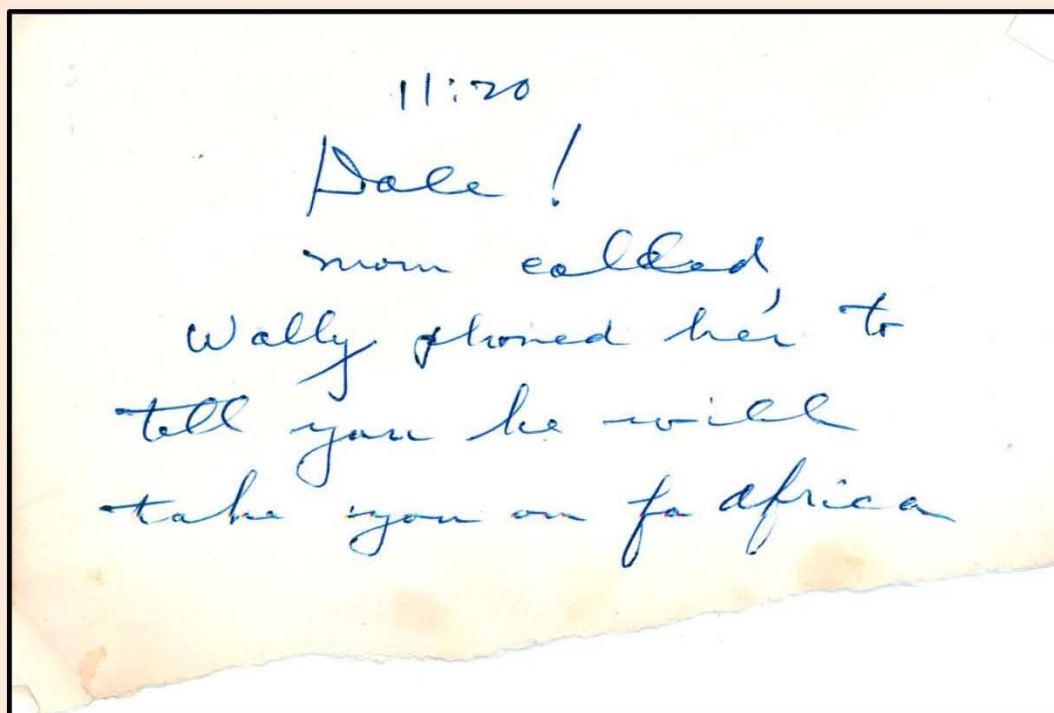 11:20
Dale!
mom called,
Wally phoned her to
tell you he will
take you on fo africa